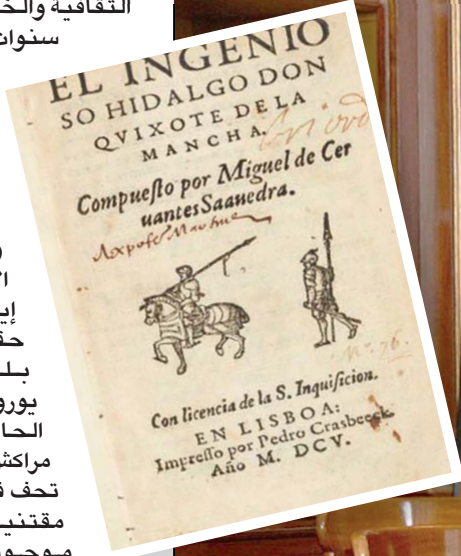 الثقافية والخ
سنوات
EL INGENIO
SO HIDALGO DON
QVIXOTE DE LA
MANCHA.
Compuesto por Miguel de Cer
uantes Saauedra.
Con licencia de la S. Inquisicion.
EN LISBOA:
Impresso por Pedro Crasbeeck.
Año M. DCV.
حق
يورو
الحا
مراكش
تحف ف